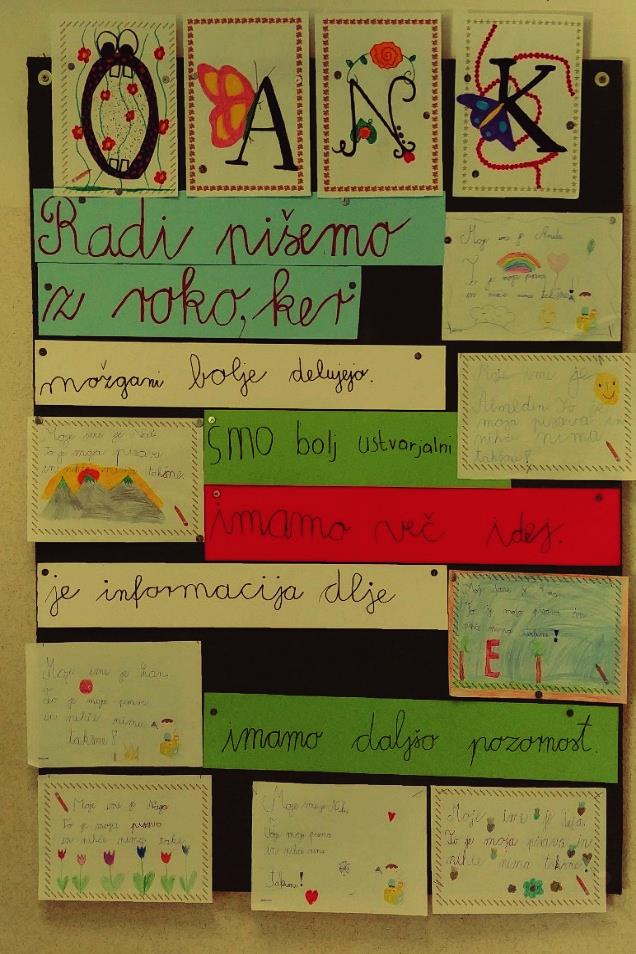 O A N K
Radi pišemo
z roko, ker
možgani bolje delujejo.
smo bolj ustvarjalni
imamo več idej.
je informacija dlje
imamo daljšo pozornost.
Moje ime je
To je moja pisava
in nihče nima takšne!
Moje ime je
Almedin. To je
moja pisava in
nihče nima
takšne!
Moje ime je
To je moja pisava
in nihče nima takšne.
To je moja pisava in
nihče nima takšne!
Moje ime je
To je moja pisava
in nihče nima
takšne!
Moje ime je
To je moja pisava
in nihče nima
moja pisava
in nihče nima
takšne!
Moje ime je
To je moja pisava in
nihče nima takšne!